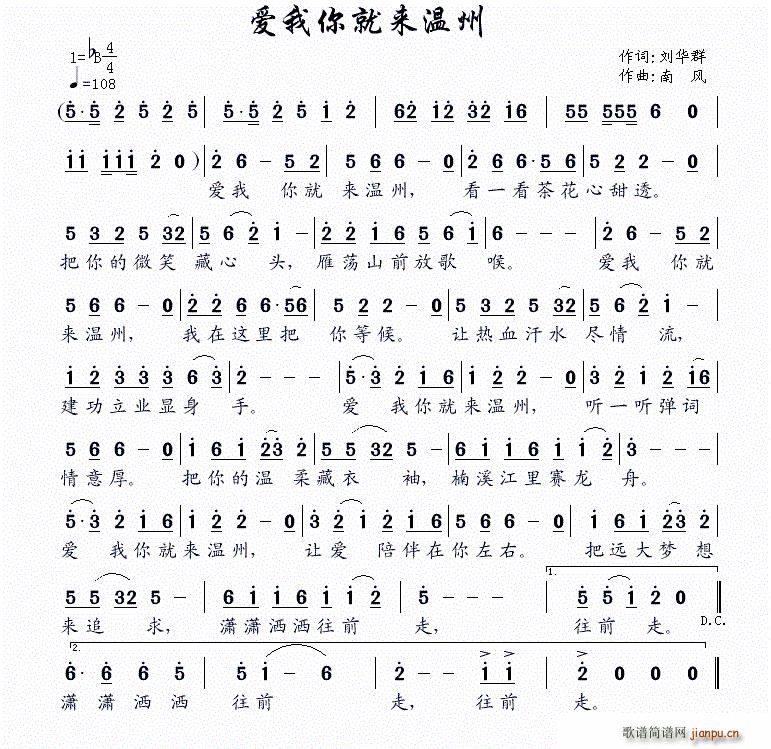 爱我你就来温州
1=♭B 4/4
♩=108
作词:刘华群
作曲:南 风
(5·5 2 5 2 5 | 5·5 2 5 1 2 | 62 12 32 16 | 55 555 6 0 |
11 111 2 0 ) | 2 6 - 5 2 | 5 6 6 - 0 | 2 2 6 6·5 6 | 5 2 2 - 0 |
爱我 你就 来温州, 看一看茶花心甜透。
5 3 2 5 32 | 5 6 2 1 - | 2 2 1 6 5 6 1 | 6 - - - | 2 6 - 5 2 |
把你的微笑 藏心 头, 雁荡山前放歌 喉。 爱我 你就
5 6 6 - 0 | 2 2 6 6·56 | 5 2 2 - 0 | 5 3 2 5 32 | 5 6 2 1 - |
来温州, 我在这里把 你等候。 让热血汗水 尽情 流,
1 2 3 3 6 3 | 2 - - - | 5·3 2 1 6 | 1 2 2 - 0 | 2 1 2 2 16 |
建功立业显身 手。 爱 我你就来温州, 听一听弹词
5 6 6 - 0 | 1 6 1 23 2 | 5 5 32 5 - | 6 1 1 6 1 1 2 | 3 - - |
情意厚。 把你的温 柔藏衣 袖, 楠溪江里赛龙 舟。
5·3 2 1 6 | 1 2 2 - 0 | 3 2 1 2 1 6 | 5 6 6 - 0 | 1 6 1 23 2 |
爱 我你就来温州, 让爱 陪伴在你左右。 把远大梦想
5 5 32 5 - | 6 1 1 6 1 1 2 | 5 - - - | 1. 5 5 1 2 0 ‖
D.C.
来追 求, 潇潇洒洒往前 走, 往前 走。
2. 6· 6 6 5 | 5 1 - 6 | 2 - - 1 1 | 2 0 0 0 ‖
潇潇洒洒 往前 走, 往前 走。
歌谱简谱网
jianpu.cn